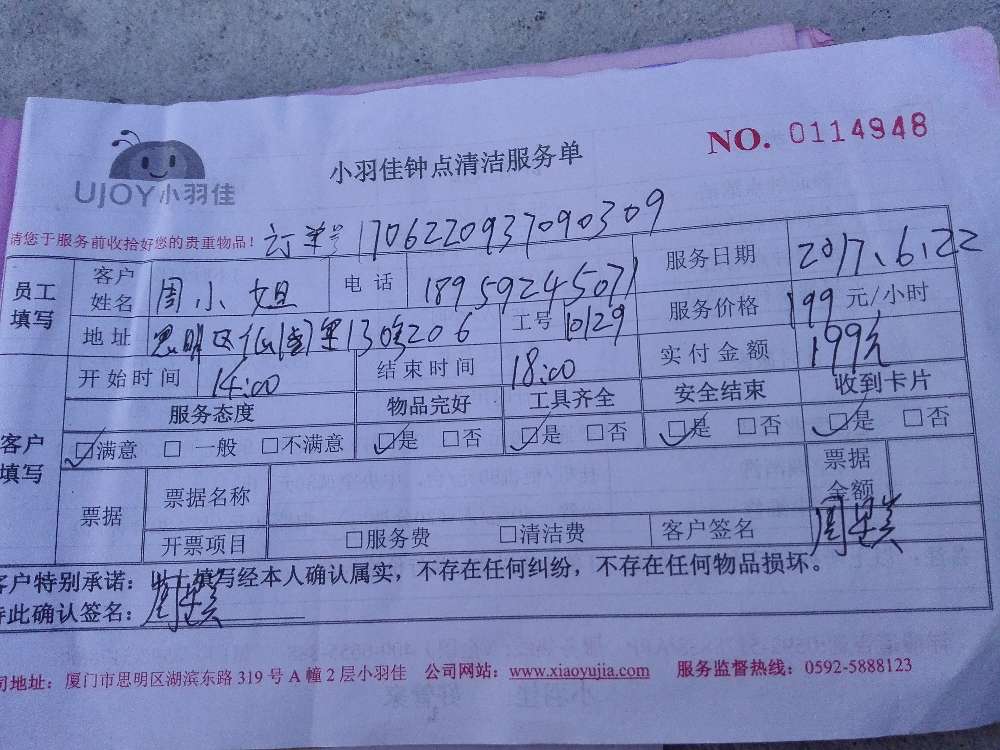 UJOY小羽佳
小羽佳钟点清洁服务单
NO. 0114948
请您于服务前收拾好您的贵重物品！
订单号 1706220937090309
员工填写 客户姓名 周小姐 电话 18959245071 服务日期 2017.6.22
地址 思明区仙岳里130号206 工号 10129 服务价格 199 元/小时
开始时间 14:00 结束时间 18:00 实付金额 199元
客户填写 服务态度 物品完好 工具齐全 安全结束 收到卡片
☑满意 □一般 □不满意 ☑是 □否 ☑是 □否 ☑是 □否 ☑是 □否
票据 票据名称 票据金额
开票项目 □服务费 □清洁费 客户签名
客户特别承诺：填写经本人确认属实，不存在任何纠纷，不存在任何物品损坏。
特此确认签名：
司地址：厦门市思明区湖滨东路 319 号 A 幢 2 层小羽佳 公司网站：www.xiaoyujia.com 服务监督热线：0592-5888123